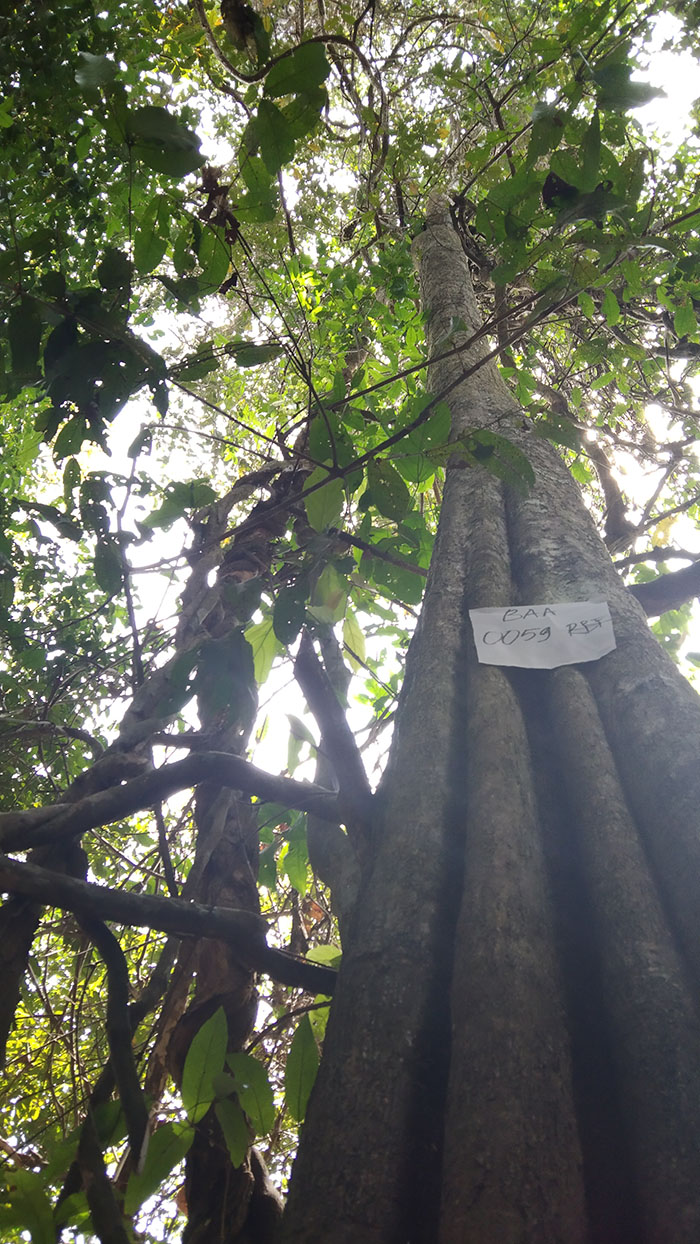 BAA
0059 RBF